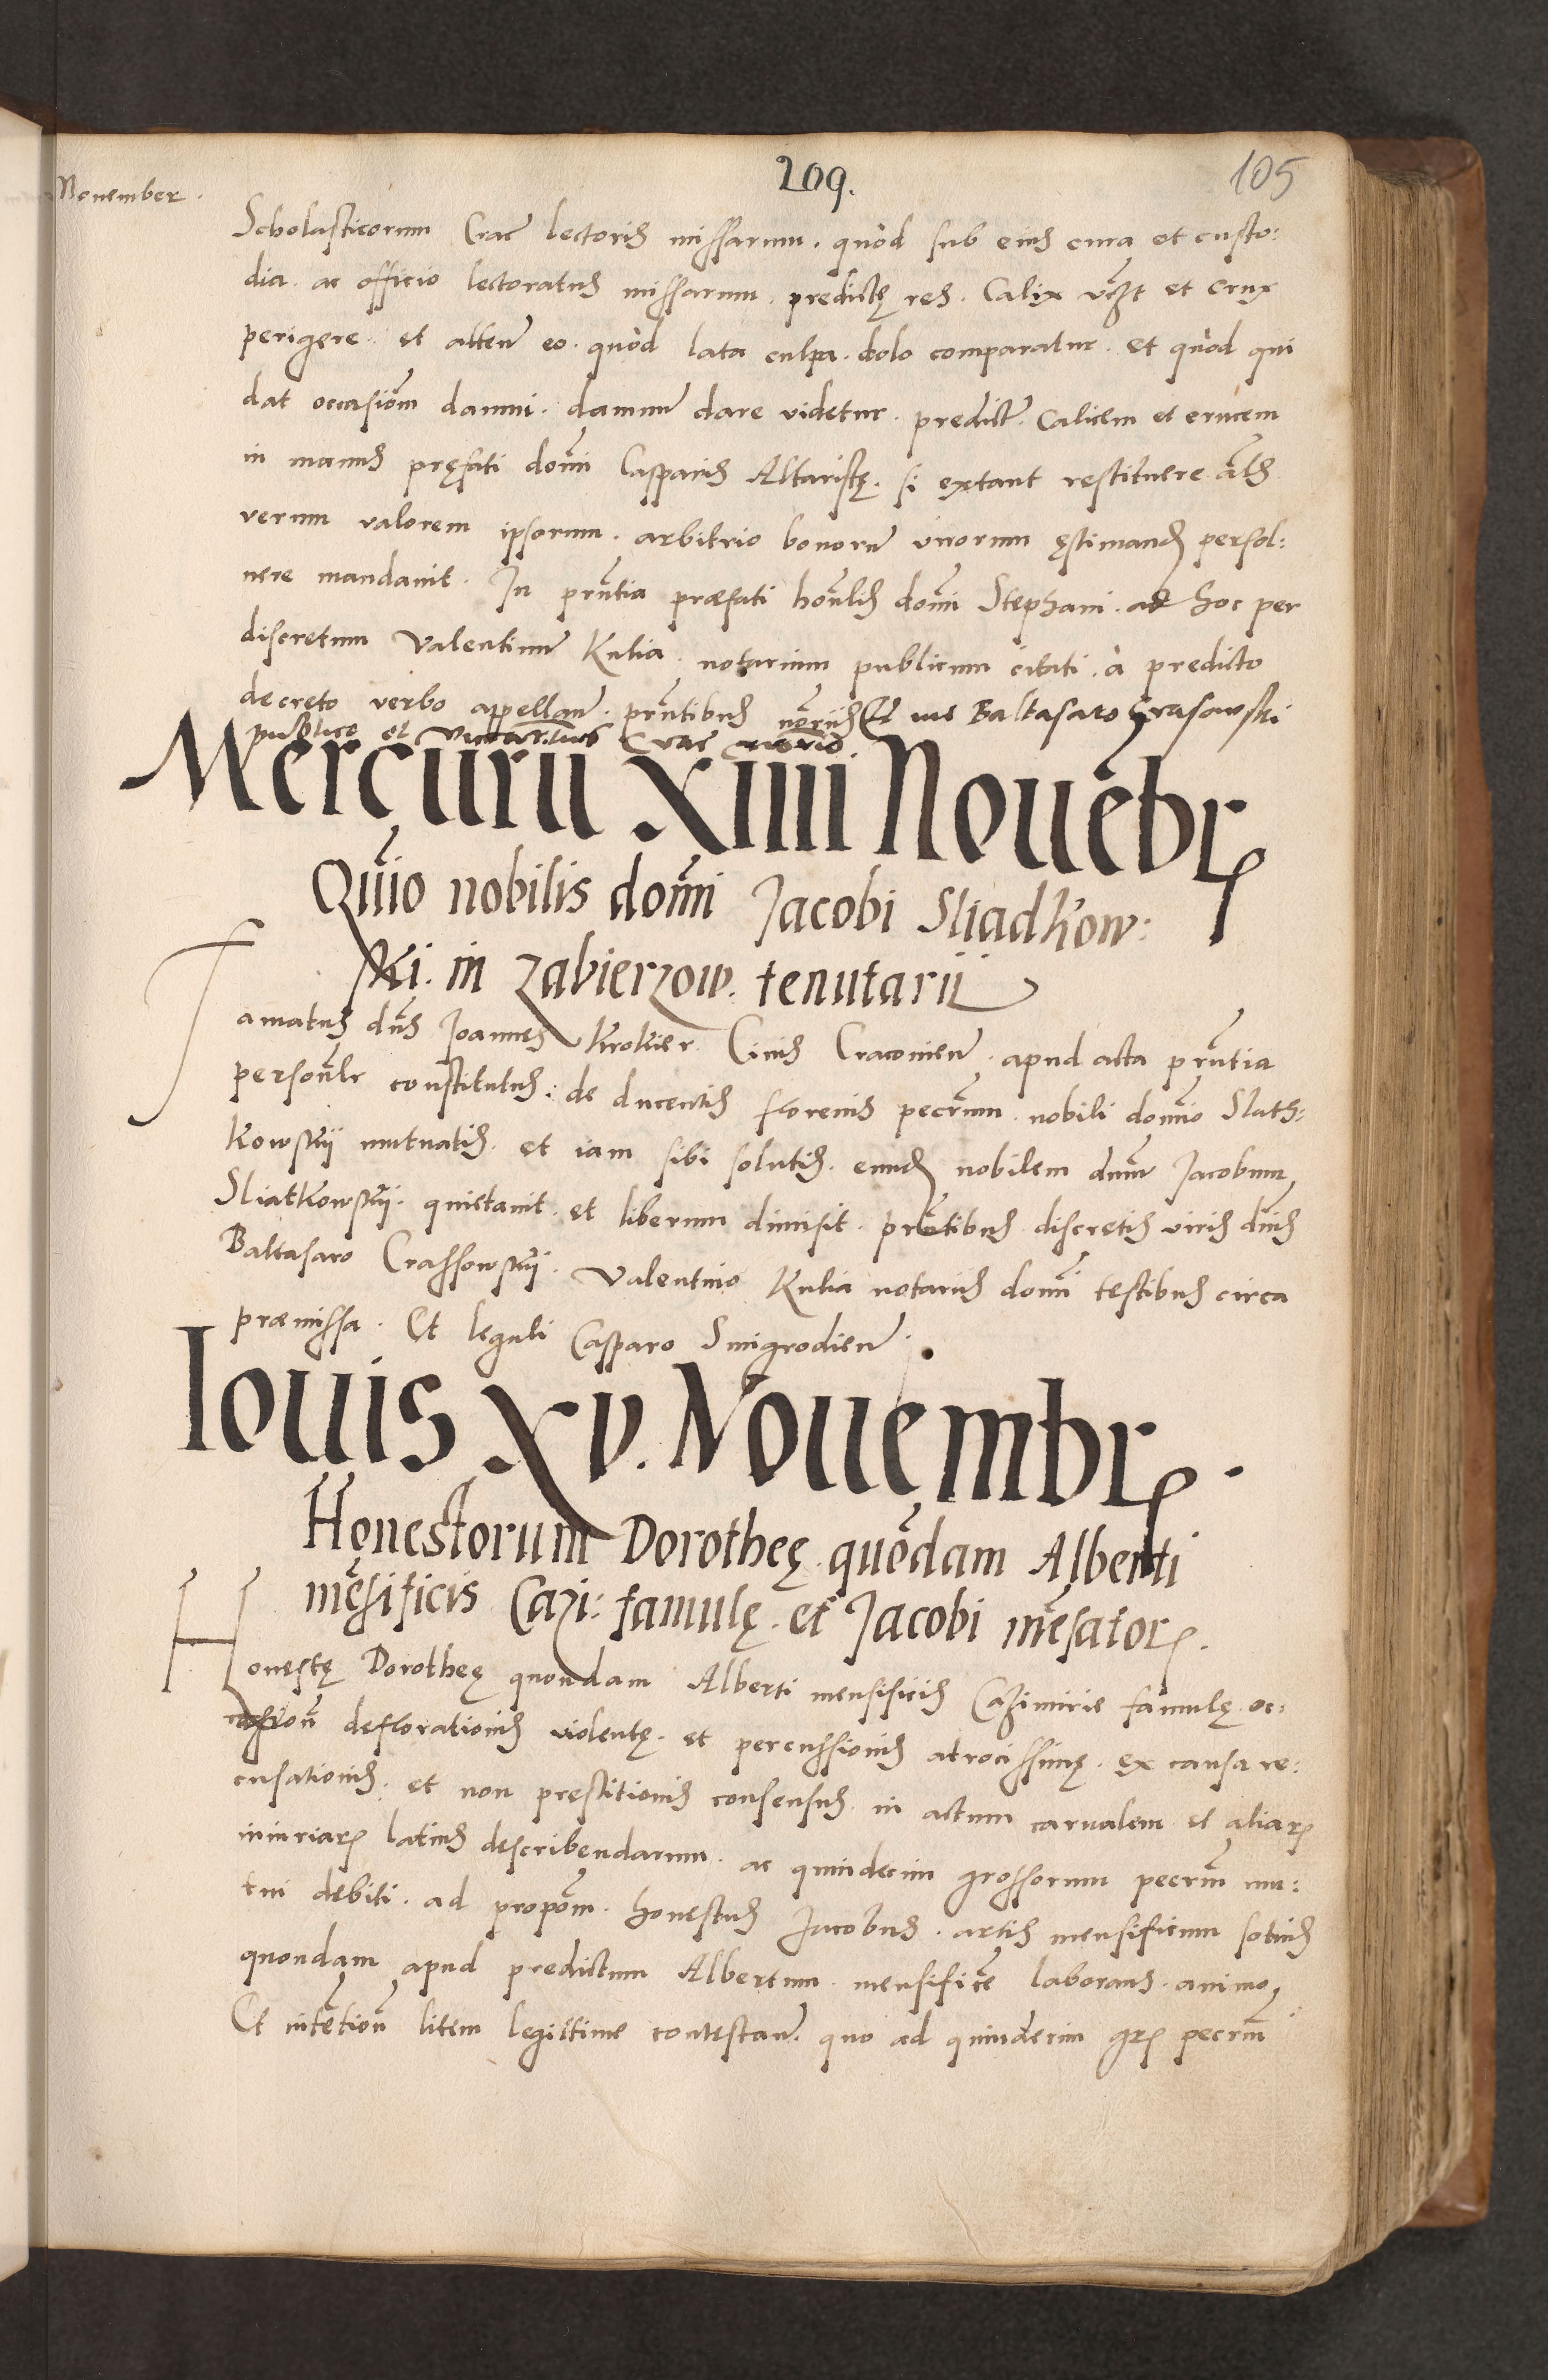 209.
105
Nouember.
Scholasticorum Crac̃ lectoris missarum. quòd sub eius cura et custo:
dia. ac officio lectoratus missarum. predictę res. Calix vȥt et crux
perigere. et atten̄ eo. quòd lata culpa. dolo comparatur. et quòd qui
dat occasiom̃ damni. damnũ dare videtur. predict̃ Calicem et crucem
in manus pręfati dom̃i Casparis Altaristę. si extant restituere al̃s
verum valorem ipsorum. arbitrio bonorũ virorum ęstimand̃ persol:
uere mandauit. In pr̃ntia præfati hon̄lis dom̃i Stephani. ad hoc per
discretum Valentinũ Kulia. notarium publicum citati. à predicto
decreto verbo appellan̄. pr̃ntibus nor̃iis Et me Baltasaro Crasowski
publico et Crac̃ nor̃io
Mercurii XIIII Nouẽbꝝ
Quĩo nobilis dom̃i Jacobi Sliadkow:
ski. in Zabierzow. tenutarii
Famatus dñs Joannes Krokier. Ciuis Cracouien̄. apud acta pr̃ntia
person̄lr constitutus: de ducentis florenis pecc̃rum. nobili domĩo Slath:
kowskij mutuatis. et iam sibi solutis. eund̃ nobilem dñum Jacobum
Sliatkowskij. quietauit. et liberum dimisit. pr̃ntibus. discretis viris dñis
Baltasaro Crassowskij. Valentino Kulia notariis dom̃i testibus circa
præmissa. Et leguli Casparo Smigrodien̄.
Iouis XV. Nouembꝝ.
Honestorum Dorotheę. quõdam Alberti
mẽsificis Cazi: famulę. et Jacobi mẽsatorꝫ.
Honestę Dorotheę quondam Alberti mensificis Cazimirie famulę. oc:
casion̄ deflorationis violentę. et percussionis atrocissimę. ex causa re:
cusationis. et non pręstitionis consensus. in actum carnalem et aliarꝫ
iniuriarꝫ latius describendarum. ac quindecim grossorum pecc̃rũ mu:
tui debiti. ad propõm. honestus Jacobus. artis mensificum socius
quondam apud predictum Albertum. mensificẽ laborans. animo
Et intẽtion̄ litem legittime contestan̄. quo ad quindecim grꝫ pecc̃rũ